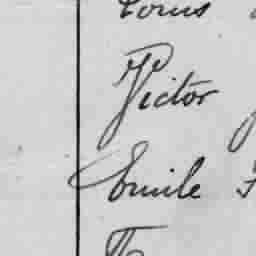 Louis
Victor
Emile